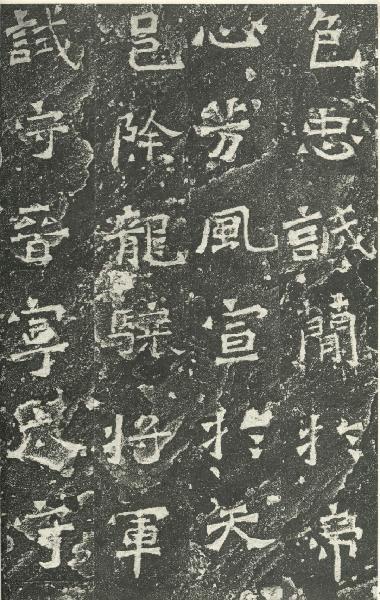 色忠誠簡於帝
心芳風宣於天
邑除龍驤將軍
試守晉寧太守